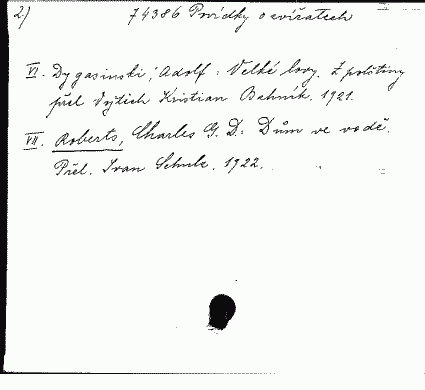 2) 74386 Povídky o zvířatech
VI. Dygasinski, Adolf: Velké lovy. Z polštiny
přel. Vojtěch Kristian Bahník. 1921.
VII. Roberts, Charles G. D.: Dům ve vodě.
Přel. Ivan Schulz. 1922.